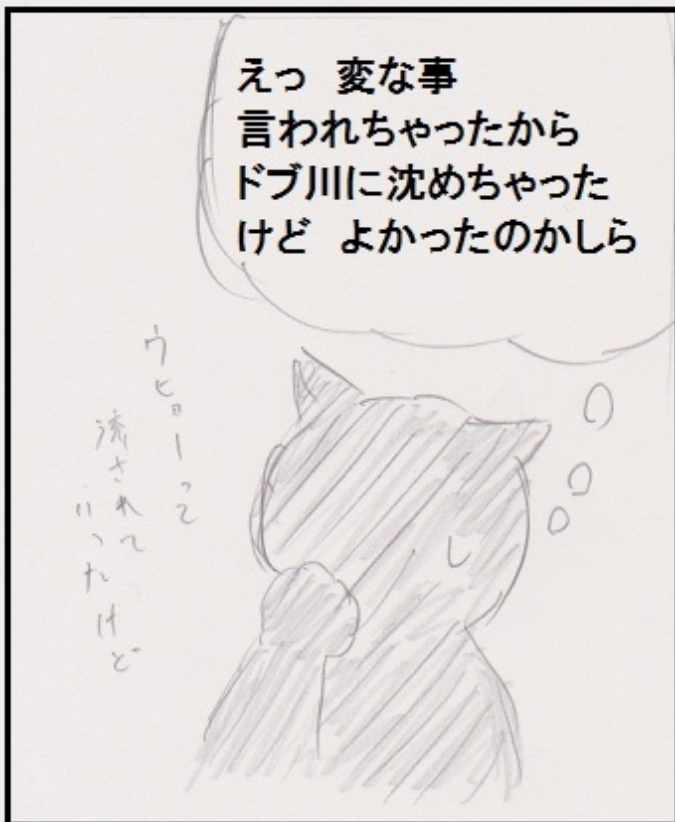 えっ　変な事
言われちゃったから
ドブ川に沈めちゃった
けど　よかったのかしら
ウヒョーって
流されて
いったけど